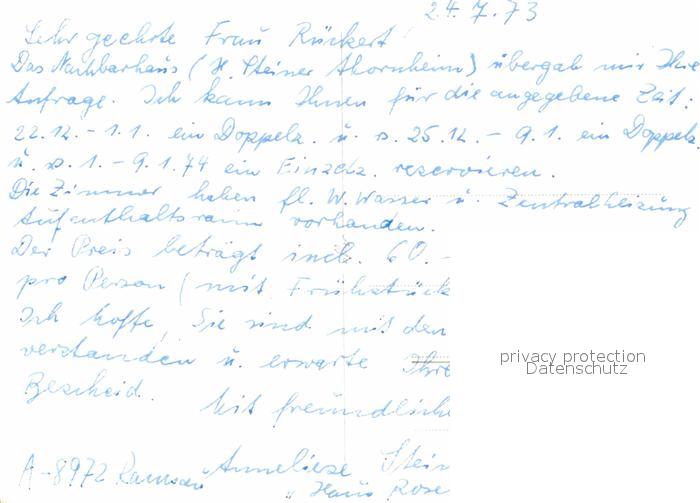 24.7.73
Sehr geehrte Frau Rückert!
Das Nachbarhaus (H. Steiner Ahornheim) übergab mir Ihre
Anfrage. Ich kann Ihnen für die angegebene Zeit:
22.12. - 1.1. ein Doppelz. u. v. 25.12. - 9.1. ein Doppelz.
u. v. 1. - 9.1.74 ein Einzelz. reservieren.
Die Zimmer haben fl. W. Wasser u. Zentralheizung
Aufenthaltsraum vorhanden.
Der Preis beträgt incl. 60.-
pro Person (mit Frühstück
Ich hoffe, Sie sind mit den
verstanden u. erwarte Ihre
Bescheid.
Mit freundliche
Anneliese Stein
A-8972 Ramsau
"Haus Rose
privacy protection
Datenschutz